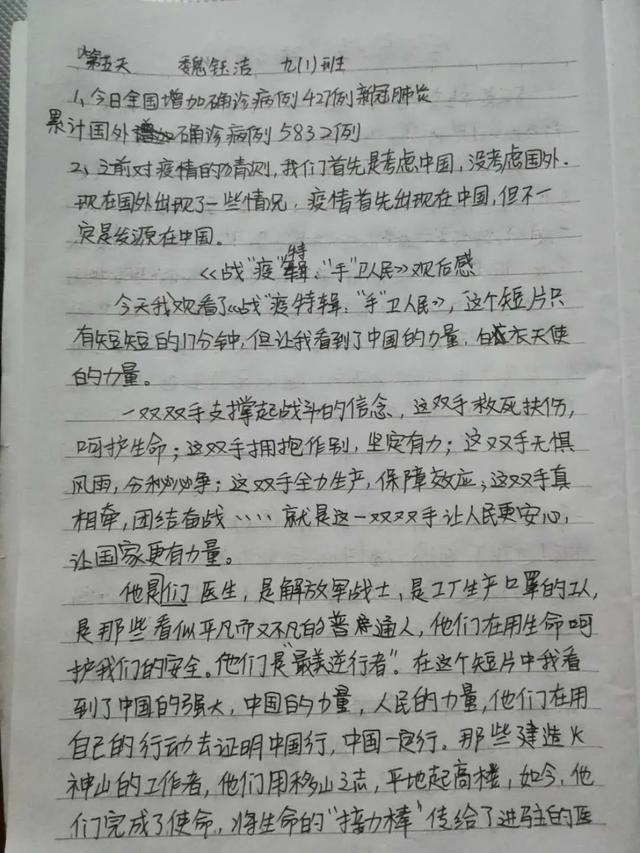 第五天 魏钰洁 九(1)班
1、今日全国增加确诊病例427例新冠肺炎
累计国外确诊病例5832例
2、之前对疫情的猜测,我们首先是考虑中国,没考虑国外.
现在国外出现了一些情况,疫情首先出现在中国,但不一
定是发源在中国。
《战"疫"特辑:"手"卫人民》观后感
今天我观看了《战"疫特辑:"手"卫人民》,这个短片只
有短短的17分钟,但让我看到了中国的力量,白衣天使
的力量。
一双双手支撑起战斗的信念,这双手救死扶伤,
呵护生命;这双手拥抱作别,坚定有力;这双手无惧
风雨,分秒必争;这双手全力生产,保障效应;这双手真
相牵,团结奋战····就是这一双双手让人民更安心,
让国家更有力量。
他们是医生,是解放军战士,是工厂生产口罩的工人,
是那些看似平凡而又不凡的普通人,他们在用生命呵
护我们的安全。他们是"最美逆行者"。在这个短片中我看
到了中国的强大,中国的力量,人民的力量,他们在用
自己的行动去证明中国行,中国一定行。那些建造火
神山的工作者,他们用移山之志,平地起高楼,如今,他
们完成了使命,将生命的"接力棒"传给了进驻的医